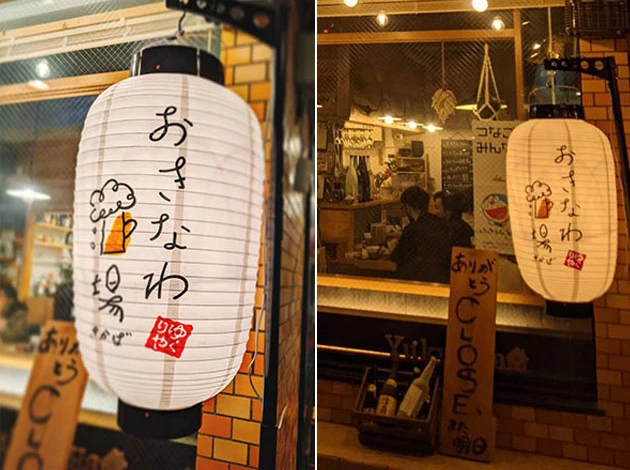 おきなわ
場
さかば
ゆく
りや
ありがとう
CLOSE
つなご
みんな
おきなわ
場
ゆく
りや
ありがとう
CLOSE.
また明日